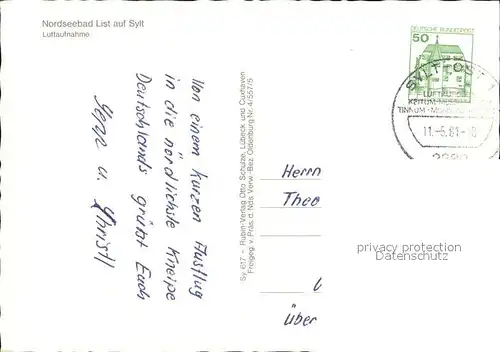 Nordseebad List auf Sylt
Luftaufnahme
Von einem kurzen Ausflug
in die nördlichste Kneipe
Deutschlands grüßt Euch
Sepp u. Christl
Sy 617 - Rubin-Verlag Otto Schulze, Lübeck und Cuxhaven
Freigeg. v. Präs. d. Nds. Verw.-Bez. Oldenburg Nr. 4/557/5
DEUTSCHE BUNDESPOST
50
SYLT-OST 1
LUFTKURORT
KEITUM
TINNUM
11.-6.81.-10
2280
Herrn
Theo
über
privacy protection
Datenschutz